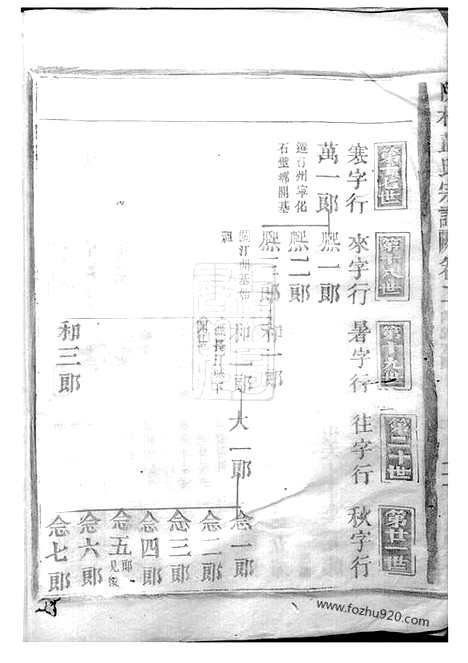 第十七世
寒字行
萬一郎
遷汀州寧化
石壁鄉開基
第十八世
來字行
熈一郎
熈二郎
熈三郎
第十九世
暑字行
和一郎
和二郎
和三郎
第二十世
往字行
大一郎
第廿一世
秋字行
念一郎
念二郎
念三郎
念四郎
念五郎見後
念六郎
念七郎
www.fozhu920.com